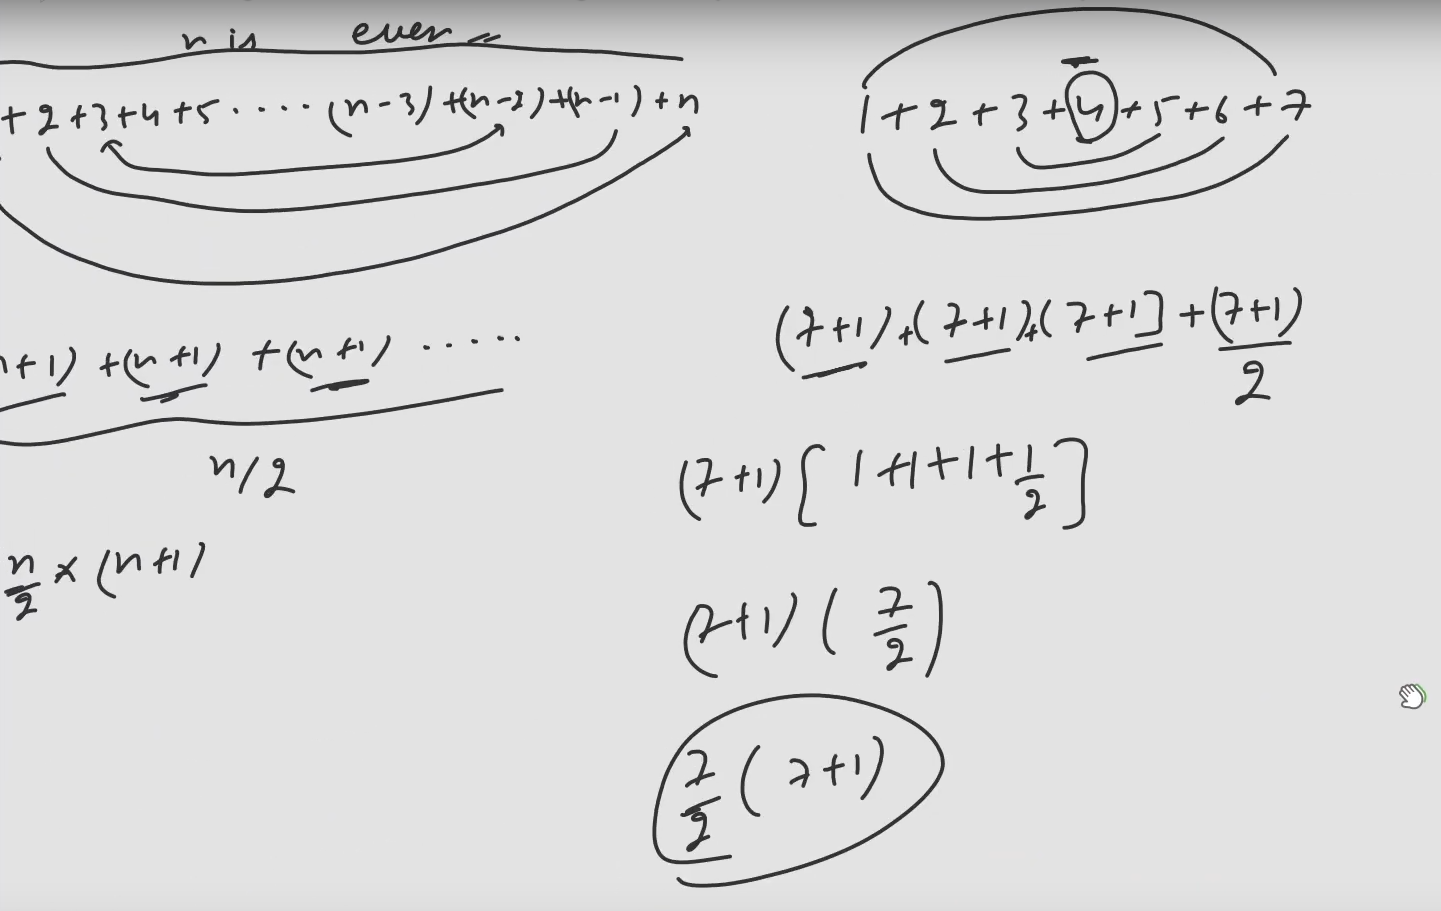 n is even
+ 2 + 3 + 4 + 5 ..... (n-3) + (n-2) + (n-1) + n
n+1) + (n+1) + (n+1) ......
n/2
n/2 × (n+1)
1 + 2 + 3 + 4 + 5 + 6 + 7
(7+1) + (7+1) + (7+1] + (7+1)/2
(7+1) [ 1+1+1+1/2 ]
(7+1) ( 7/2 )
7/2 ( 7+1 )